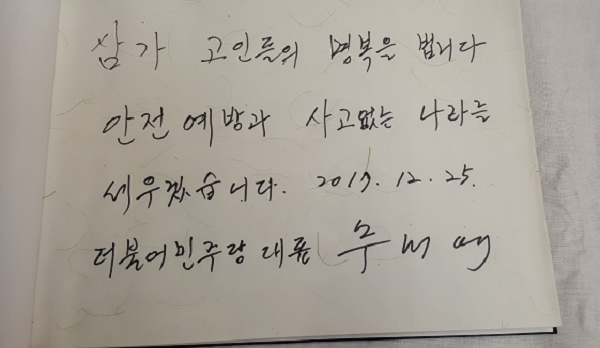 삼가 고인들의 명복을 빕니다
안전 예방과 사고없는 나라를
세우겠습니다. 2017. 12. 25.
더불어민주당 대표